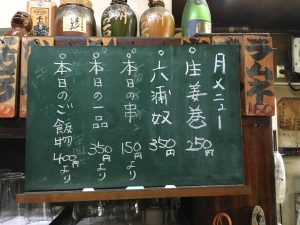 月メニュー
生姜巻 250円
六浦奴 350円
本日の串 150円より
本日の一品 350円より
本日のご飯物 400円より
ラムネ